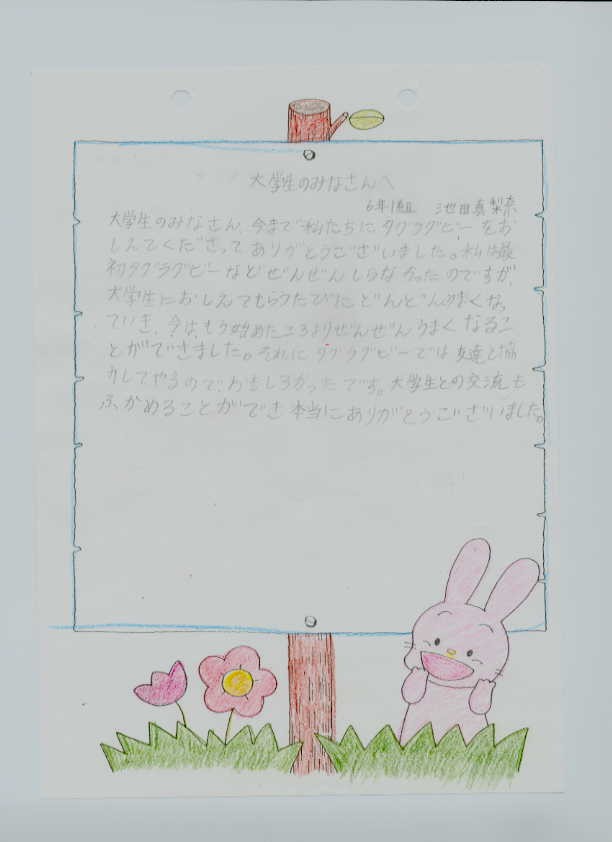 大学生のみなさんへ
6年1組 池田真梨奈
大学生のみなさん、今まで私たちにタグラグビーをお
しえてくださってありがとうございました。私は最
初タグラグビーなどぜんぜんしらなかったのですが、
大学生におしえてもらうたびにどんどんうまくなっ
ていき、今はもう始めたころよりぜんぜんうまくなるこ
とができました。それにタグラグビーでは友達と協
力してやるので、おもしろかったです。大学生との交流も
ふかめることができ本当にありがとうございました。